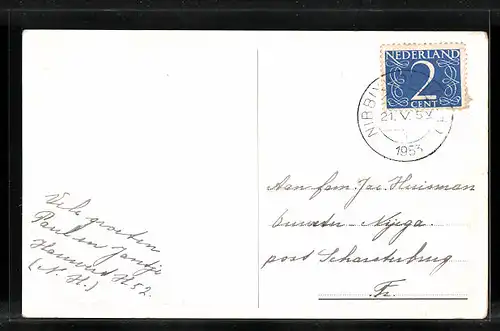 NEDERLAND
2
CENT
21. V. 5
1953
Vele groeten
Paul en Jantje
H 52.
(N. H.)
Aan fam. Jac. Huisman
Nijega
post Scharsterbrug
Fr.